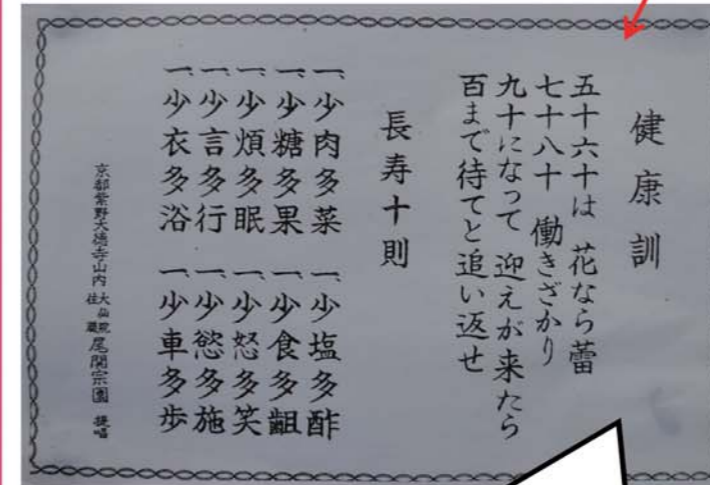 健康訓
五十六十は 花なら蕾
七十八十 働きざかり
九十になって 迎えが来たら
百まで待てと追い返せ
長寿十則
一、少肉多菜 一、少塩多酢
一、少糖多果 一、少食多齟
一、少煩多眠 一、少怒多笑
一、少言多行 一、少慾多施
一、少衣多浴 一、少車多歩
京都紫野大徳寺山内 大仙院 住職 尾関宗園 提唱